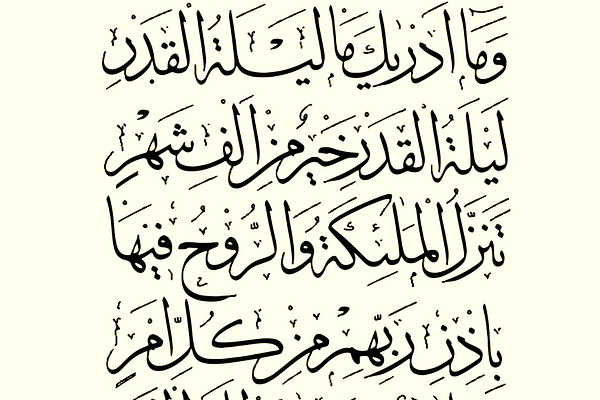 وَمَا أَدْرَىٰكَ مَا لَيْلَةُ الْقَدْرِ
لَيْلَةُ الْقَدْرِ خَيْرٌ مِنْ أَلْفِ شَهْرٍ
تَنَزَّلُ الْمَلَٰئِكَةُ وَالرُّوحُ فِيهَا
بِإِذْنِ رَبِّهِمْ مِنْ كُلِّ أَمْرٍ